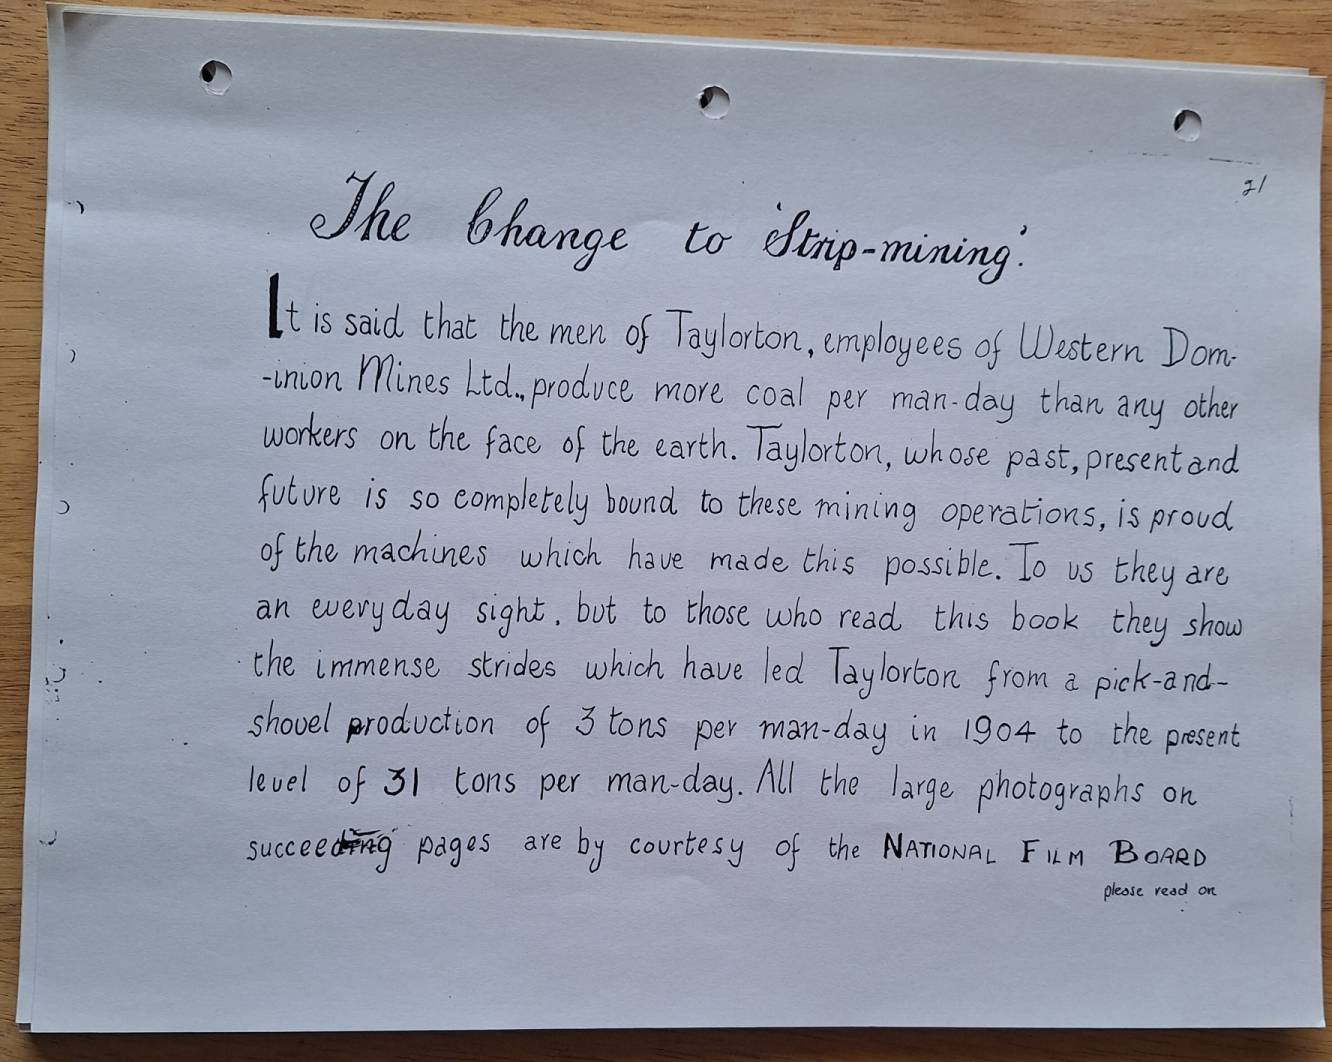 21
The Change to 'Strip-mining'.
It is said that the men of Taylorton, employees of Western Dom-
-inion Mines Ltd., produce more coal per man-day than any other
workers on the face of the earth. Taylorton, whose past, present and
future is so completely bound to these mining operations, is proud
of the machines which have made this possible. To us they are
an everyday sight, but to those who read this book they show
the immense strides which have led Taylorton from a pick-and-
shovel production of 3 tons per man-day in 1904 to the present
level of 31 tons per man-day. All the large photographs on
succeeding pages are by courtesy of the NATIONAL FILM BOARD
please read on